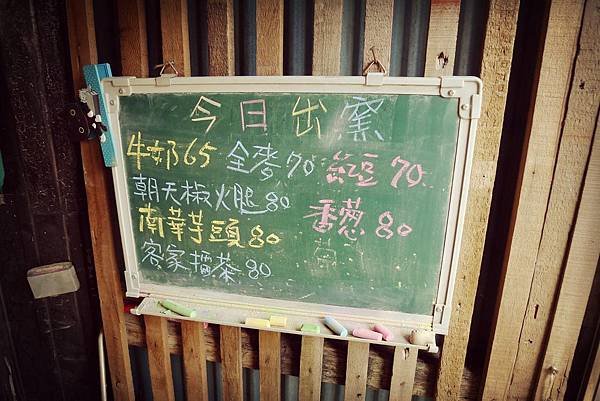 今日出窯
牛奶65 全麥70 紅豆70
朝天椒火腿80 香蔥80
南華芋頭80
客家擂茶80